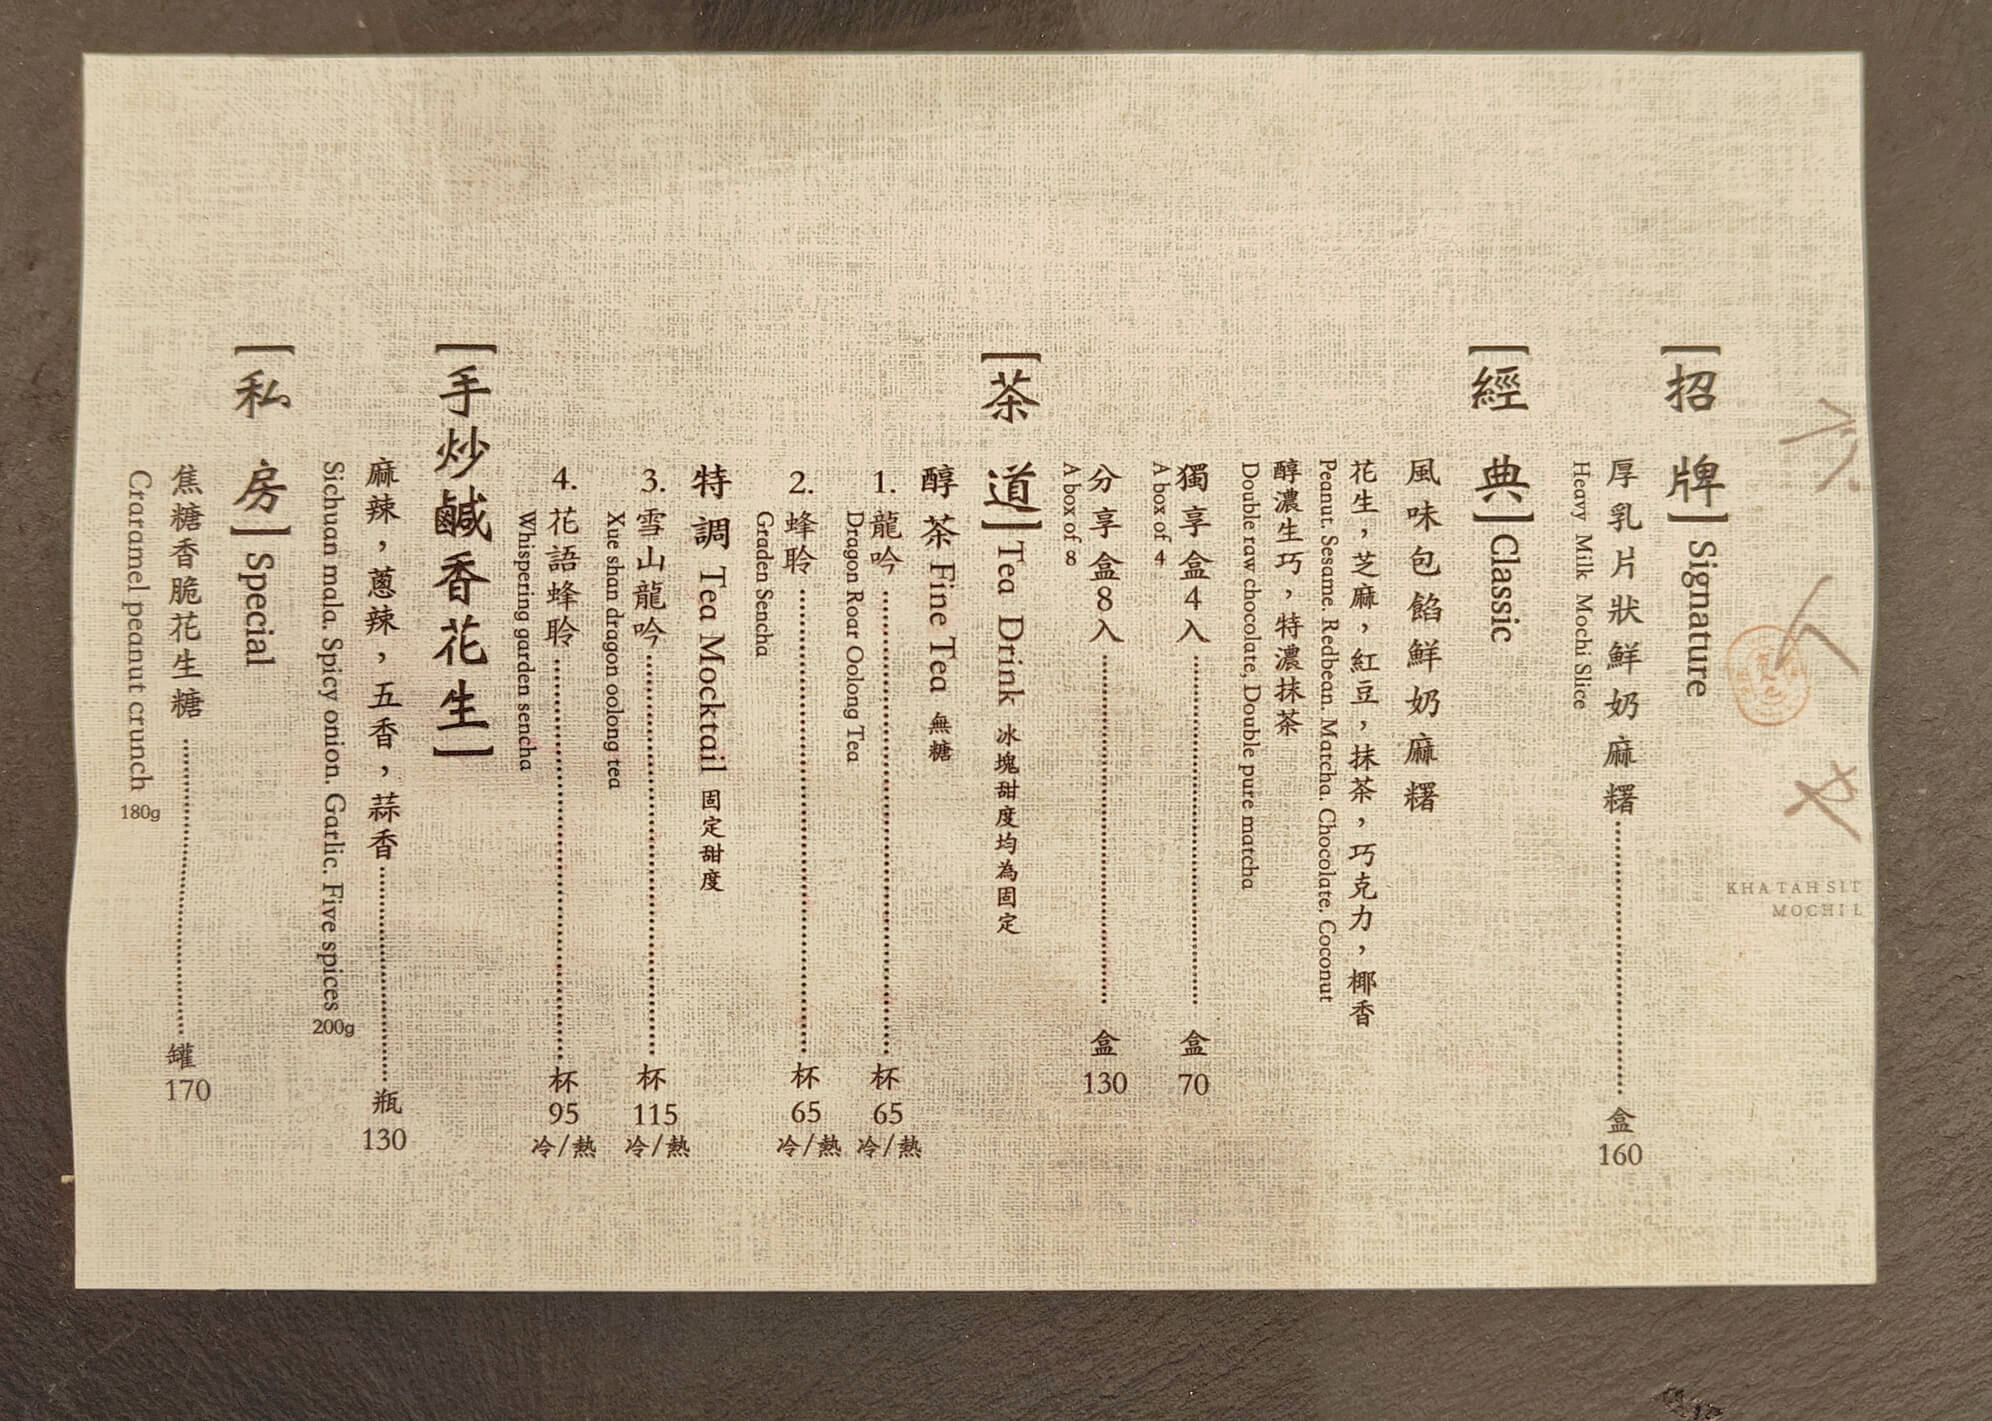 KHA TAH SIT
MOCHI L
[招牌] Signature
厚乳片狀鮮奶麻糬 盒 160
Heavy Milk Mochi Slice
[經典] Classic
風味包餡鮮奶麻糬
花生，芝麻，紅豆，抹茶，巧克力，椰香
Peanut. Sesame. Redbean. Matcha. Chocolate. Coconut
醇濃生巧，特濃抹茶
Double raw chocolate, Double pure matcha
獨享盒4入 盒 70
A box of 4
分享盒8入 盒 130
A box of 8
[茶道] Tea Drink 冰塊甜度均為固定
醇茶 Fine Tea 無糖
1. 龍吟 杯 65 冷/熱
Dragon Roar Oolong Tea
2. 蜂聆 杯 65 冷/熱
Graden Sencha
特調 Tea Mocktail 固定甜度
3. 雪山龍吟 杯 115 冷/熱
Xue shan dragon oolong tea
4. 花語蜂聆 杯 95 冷/熱
Whispering garden sencha
[手炒鹹香花生]
麻辣，蔥辣，五香，蒜香 瓶 130
Sichuan mala. Spicy onion. Garlic. Five spices 200g
[私房] Special
焦糖香脆花生糖 罐 170
Craramel peanut crunch 180g